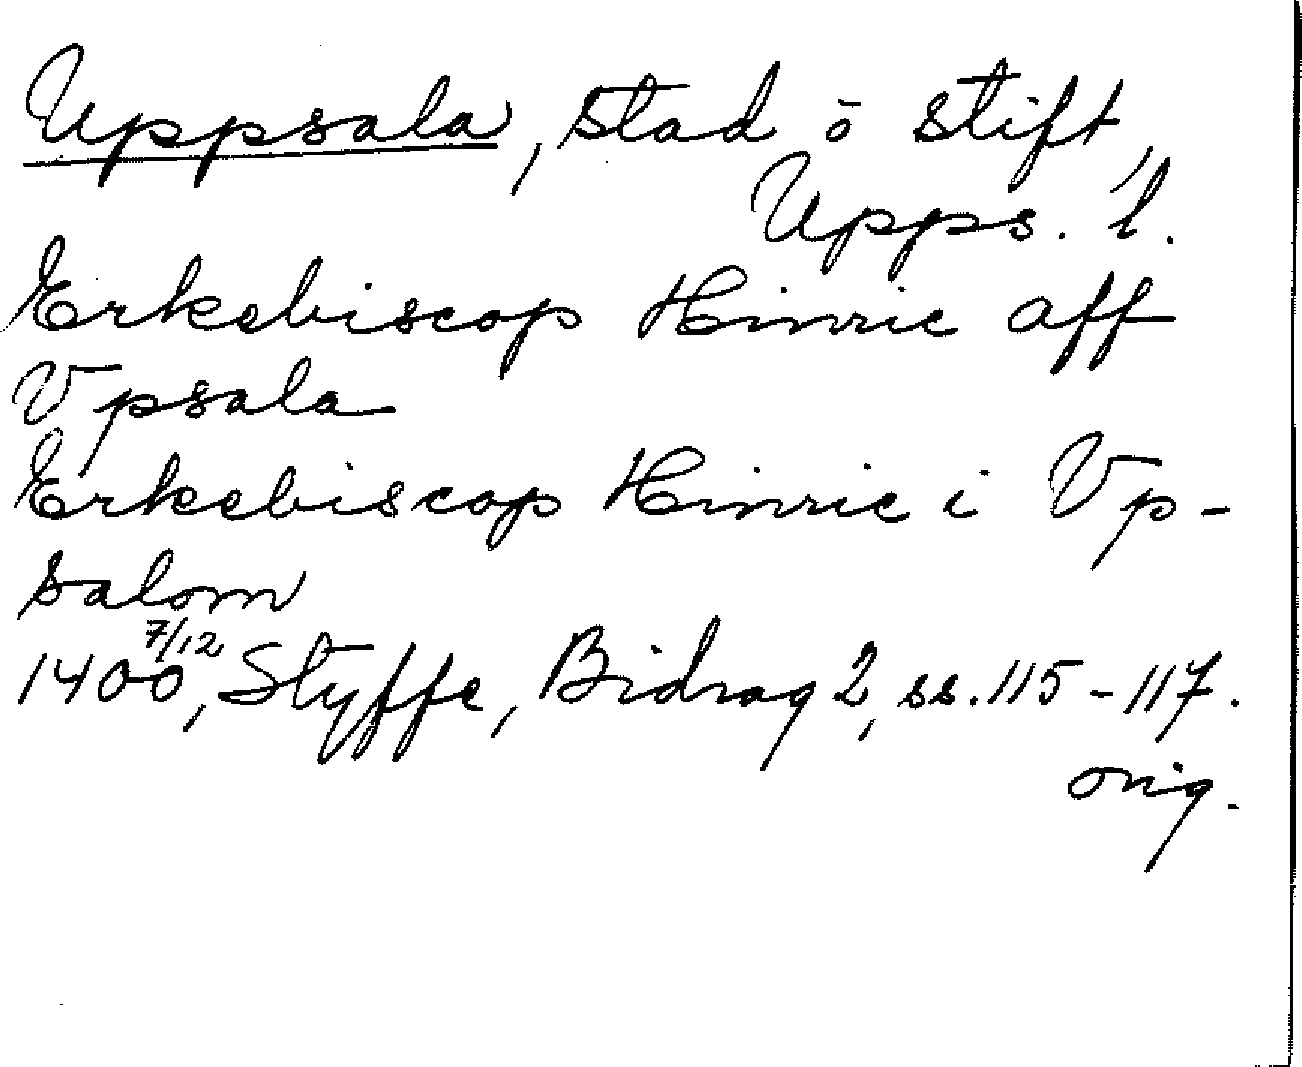 Uppsala, stad o stift,
Upps. l.
Erkebiscop Hinric aff
Vpsala
Erkebiscop Hinric i Vp-
salom
1400 7/12, Styffe, Bidrag 2, ss. 115-117.
orig.